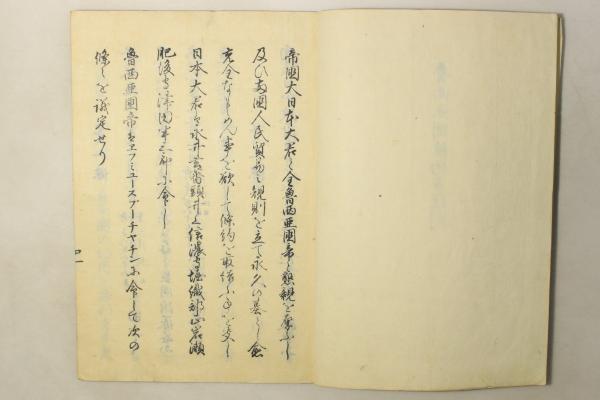 帝國大日本大君と全魯西亜國帝と懇親を厚ふし
及ひ両國人民貿易之規則を立て永久の基とし愈
充全なら志めん事を欲して條約を取結ふ事を決し
日本大君ハ永井玄蕃頭井上信濃守堀織部正岩瀬
肥後守津田半三郎に命し
魯西亜國帝ハエフミユースプーチヤチンに命して次の
條々を議定せり